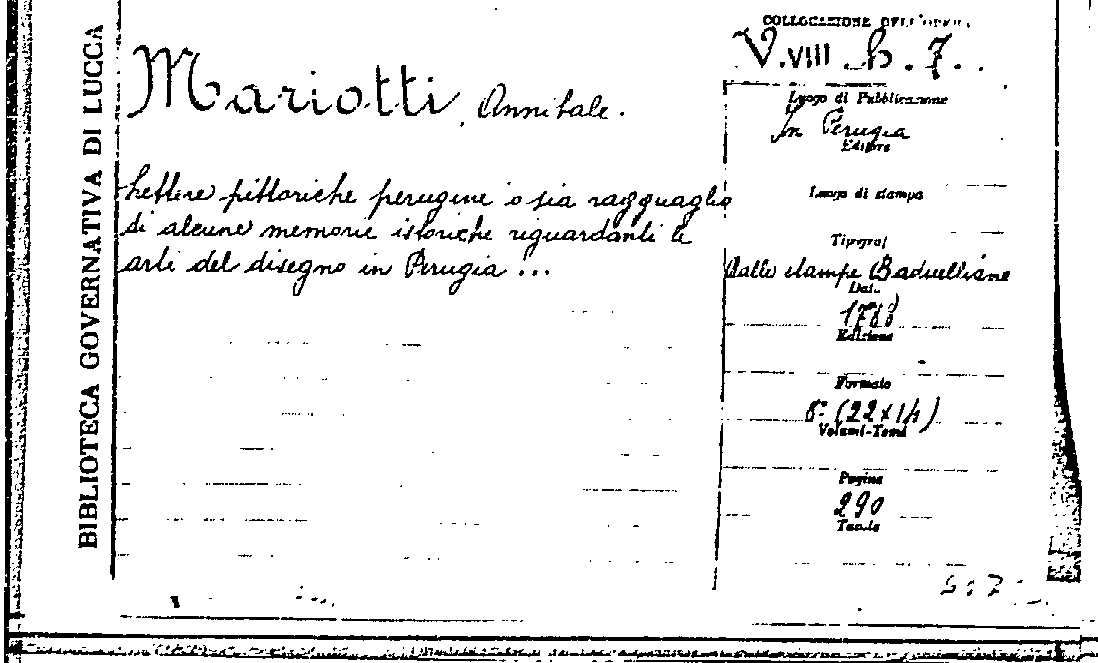 BIBLIOTECA GOVERNATIVA DI LUCCA
Mariotti, Annibale.
Lettere pittoriche perugine o sia ragguaglio
di alcune memorie istoriche riguardanti le
arti del disegno in Perugia ...
COLLOCAZIONE DELL'OPERA
V.VIII.h.7.
Luogo di Pubblicazione
In Perugia
Editore
Luogo di stampa
Tipograf
Dalle stampe Baduelliane
Data
1788
Edizione
Formato
8° (22x14)
Volumi-Tomi
Pagine
290
Tavole